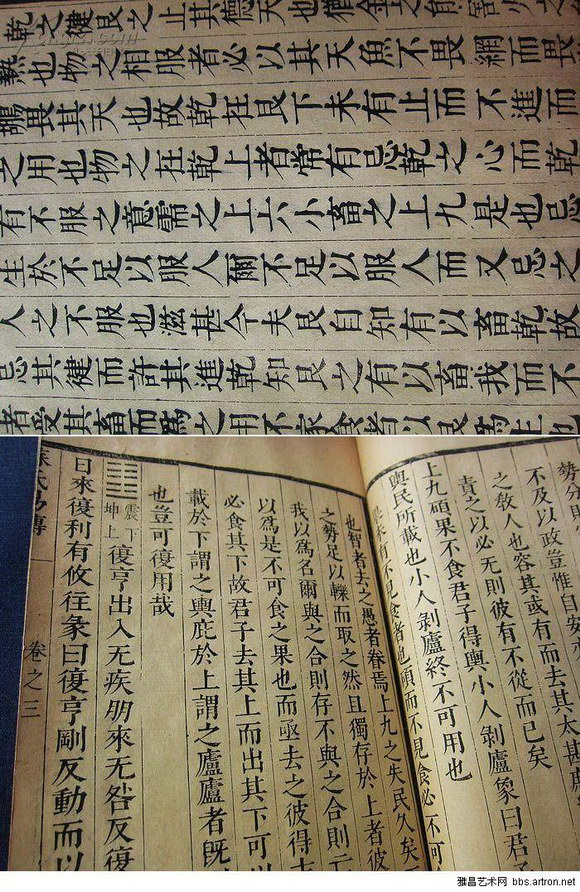 乾之健艮之止其德天也猶金之能割
熱也物之相服者必以其天魚不畏網而畏
鵜畏其天也故乾在艮下未有止而不進而
之用也物之在乾上者常有忌乾之心而乾
有不服之意需之上六小畜之上九是也忌
生於不足以服人爾不足以服人而又忌之
人之不服也滋甚今夫艮自知有以畜乾故
忌其健而許其進乾知艮之有以畜我而不
者受其畜而爲之用不家食者有以艮爲上也
勢分則
不及以政豈惟自安
之敎人也容其或有而去其太甚
責之以必无則彼有不從而已矣
上九碩果不食君子得輿小人剥廬象曰君子
輿民所載也小人剥廬終不可用也
果未有不見食者也碩而不見食必不可
也智者去之愚者眷焉上九之失民久矣
之勢足以轢而取之然且獨存於上者彼
我以爲名爾與之合則存不與之合則亡
以爲是不可食之果也而亟去之彼得志
必食其下故君子去其上而出其下可以
載於下謂之輿庇於上謂之廬廬者旣
也豈可復用哉
震下坤上 復亨出入无疾朋來无咎反復
日來復利有攸往彖曰復亨剛反動而以
蘇氏易傳 卷之三
雅昌艺术网 bbs.artron.net